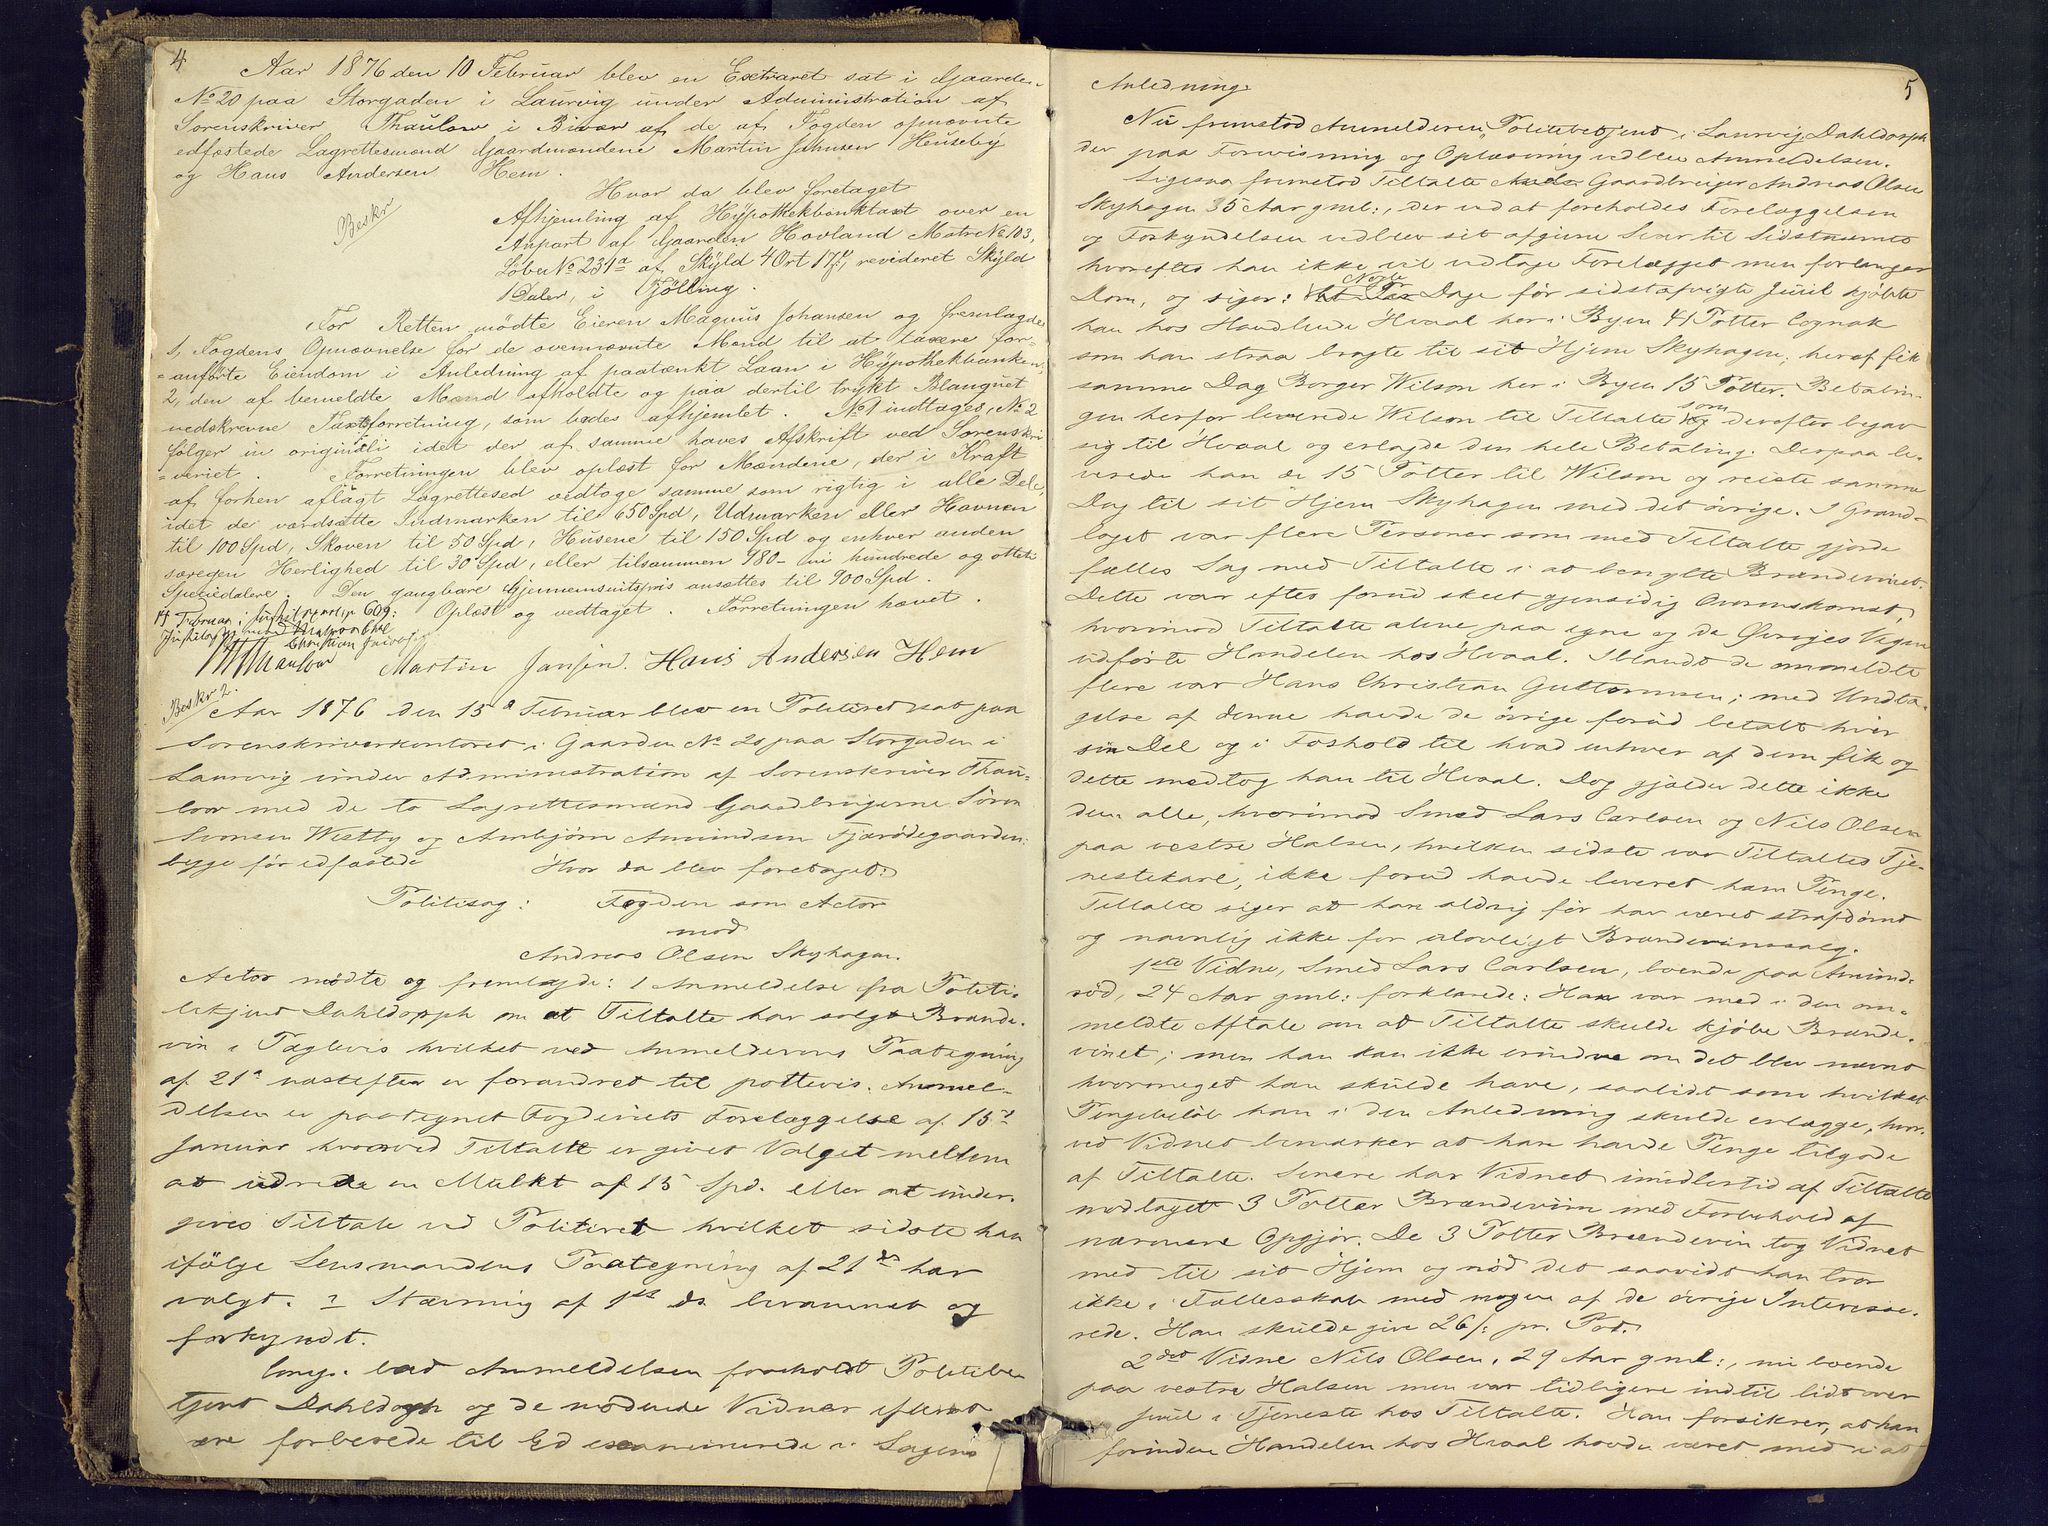 4
Aar 1876 den 10 Februar blev en Extraret sat i Gaarden
No 20 paa Storgaden i Laurvig under Administration af
Sorenskriver Thaulow i Bivær af de af Fogden opnævnte
edfæstede Lagrettesmænd Gaardmændene Martin Jahnsen Heuseby
og Hans Andersen Hem.
Beskr
Hvor da blev foretaget
Afhjemling af Hypothekbanktaxt over en
Anpart af Gaarden Hovland Matr No 103,
Løbe No 231a af Skyld 4 Ort 17 , revideret Skyld
1 Daler, i Tjølling.
For Retten mødte Eieren Magnus Johansen og fremlagde
1, Fogdens Opnævnelse for de ovennævnte Mænd til at taxere for-
=anførte Eiendom i Anledning af paatænkt Laan i Hypothekbanken,
2, den af bemeldte Mænd afholdte og paa dertil trykt Blanquet
nedskrevne Taxtforretning, som bedes afhjemlet. No 1 indtages, No 2
følger in originali idet der af samme haves Afskrift ved Sorenskri
=veriet. Forretningen blev oplæst for Mændene, der i Kraft
af forhen aflagt Lagrettesed vedtoge samme som rigtig i alle Dele,
idet de værdsætte Indmarken til 650 Spd, Udmarken eller Havnen
til 100 Spd, Skoven til 50 Spd, Husene til 150 Spd og enhver anden
særegen Herlighed til 30 Spd, eller tilsammen 980 - ni hundrede og otteti
Speciedalere. Den gangbare Gjennemsnitspris ansættes til 900 Spd.
Oplæst og vedtaget. Forretningen hævet.
14 Februar i 609:
Christian
Thaulow Martin Jansen. Hans Andersen Hem
Beskr 2.
Aar 1876 den 15d Februar blev en Politiret sat paa
Sorenskriverkontoret i Gaarden No 20 paa Storgaden i
Laurvig under Administration af Sorenskriver Thau-
low med de to Lagrettesmænd Gaardbrugerne Søren
Simonsen Westby og Anbjørn Amundsen Fjærødegaarden:
begge før edfæstede
Hvor da blev foretaget:
Politisag: Fogden som Actor
mod
Andreas Olsen Skyhagen.
Actor mødte og fremlagde: 1 Anmeldelse fra Politi-
betjent Dahldorph om at Tiltalte har solgt Brænde-
vin i Pæglevis hvilket ved Anmelderens Paategning
af 21de næstefter er forandret til pottevis. Anmel-
delsen er paategnet Fogderiets Forelæggelse af 15de
Januar hvorved Tiltalte er givet Valget mellem
at udrede en Mulkt af 15 Spd. eller at under-
gives Tiltale ved Politiret hvilket sidste han
ifølge Lensmandens Paategning af 21de har
valgt. 2 Stævning af 1ste ds. berammet og
forkyndt.
bad Anmeldelsen foreholdt Politibe
tjent Dahldorph og de mødende Vidner efter at
være forberede til Ed examinerede i Sagens
5
Anledning.
Nu fremstod Anmelderen, Politibetjent i Laurvig Dahldorph
der paa Forevisning og Oplæsning vedblev Anmeldelsen.
Ligesaa fremstod Tiltalte Gaardbruger Andreas Olsen
Skyhagen 35 Aar gml:, der ved at foreholdes Forelæggelsen
og Forkyndelsen vedblev sit afgivne Svar til Sidstnævnte
hvorefter han ikke vil vedtage Forelægget men forlanger
Dom, og siger: Nogle Dage før sidstafvigte Juul kjøbte
han hos Handlende Hvaal her i Byen 41 Potter Cognak
som han straa bragte til sit Hjem Skyhagen; heraf fik
samme Dag Borger Wilson her i Byen 15 Potter. Betalin-
gen herfor leverede Wilson til Tiltalte som derefter begav
sig til Hvaal og erlagde den hele Betaling. Derpaa le-
verede han de 15 Potter til Wilson og reiste samme
Dag til sit Hjem Skyhagen med det øvrige. I Grand-
laget var flere Personer som med Tiltalte gjorde
fælles Sag med Tiltalte i at benytte Brændevinet.
Dette var efter forud skeet gjensidig Overenskomst,
hvorimod Tiltalte alene paa egne og de Øvriges Vegne
udførte Handelen hos Hvaal. Iblandt de ommeldte
flere var Hans Christian Guttormsen; med Undta-
gelse af denne havde de øvrige forud betalt hver
sin Del og i Forhold til hvad enhver af dem fik og
dette medtog han til Hvaal. Dog gjælder dette ikke
dem alle, hvorimod Smed Lars Carlsen og Nils Olsen
paa vestre Halsen, hvilken sidste var Tiltaltes Tje-
nestekarl, ikke forud havde leveret ham Penge.
Tiltalte siger at han aldrig før har været strafdømt
og navnlig ikke for ulovligt Brændevinssalg.
1ste Vidne, Smed Lars Carlsen, boende paa Amund-
rød, 24 Aar gml: forklarede: Han var med i den om-
meldte Aftale om at Tiltalte skulde kjøbe Brænde-
vinet; men han kan ikke erindre om det blev nævnt
hvormeget han skulde have, saalidt som hvilket
Pengebeløb han i den Anledning skulde erlægge, hvor-
ved Vidnet bemærker at han havde Penge tilgode
af Tiltalte. Senere har Vidnet imidlertid af Tiltalte
modtaget 3 Potter Brændeviin med Forbehold af
nærmere Opgjør. De 3 Potter Brændevin tog Vidnet
med til sit Hjem og nød det saavidt han tror
ikke i Fællesskab med nogen af de øvrige Interesse-
rede. Han skulde give 26 /: pr. Pot.
2det Vidne Nils Olsen, 29 Aar gml:, nu boende
paa vestre Halsen men var tidligere indtil lidt over
Juul i Tjeneste hos Tiltalte. Han forsikrer, at han
forinden Handelen hos Hvaal havde været med i at